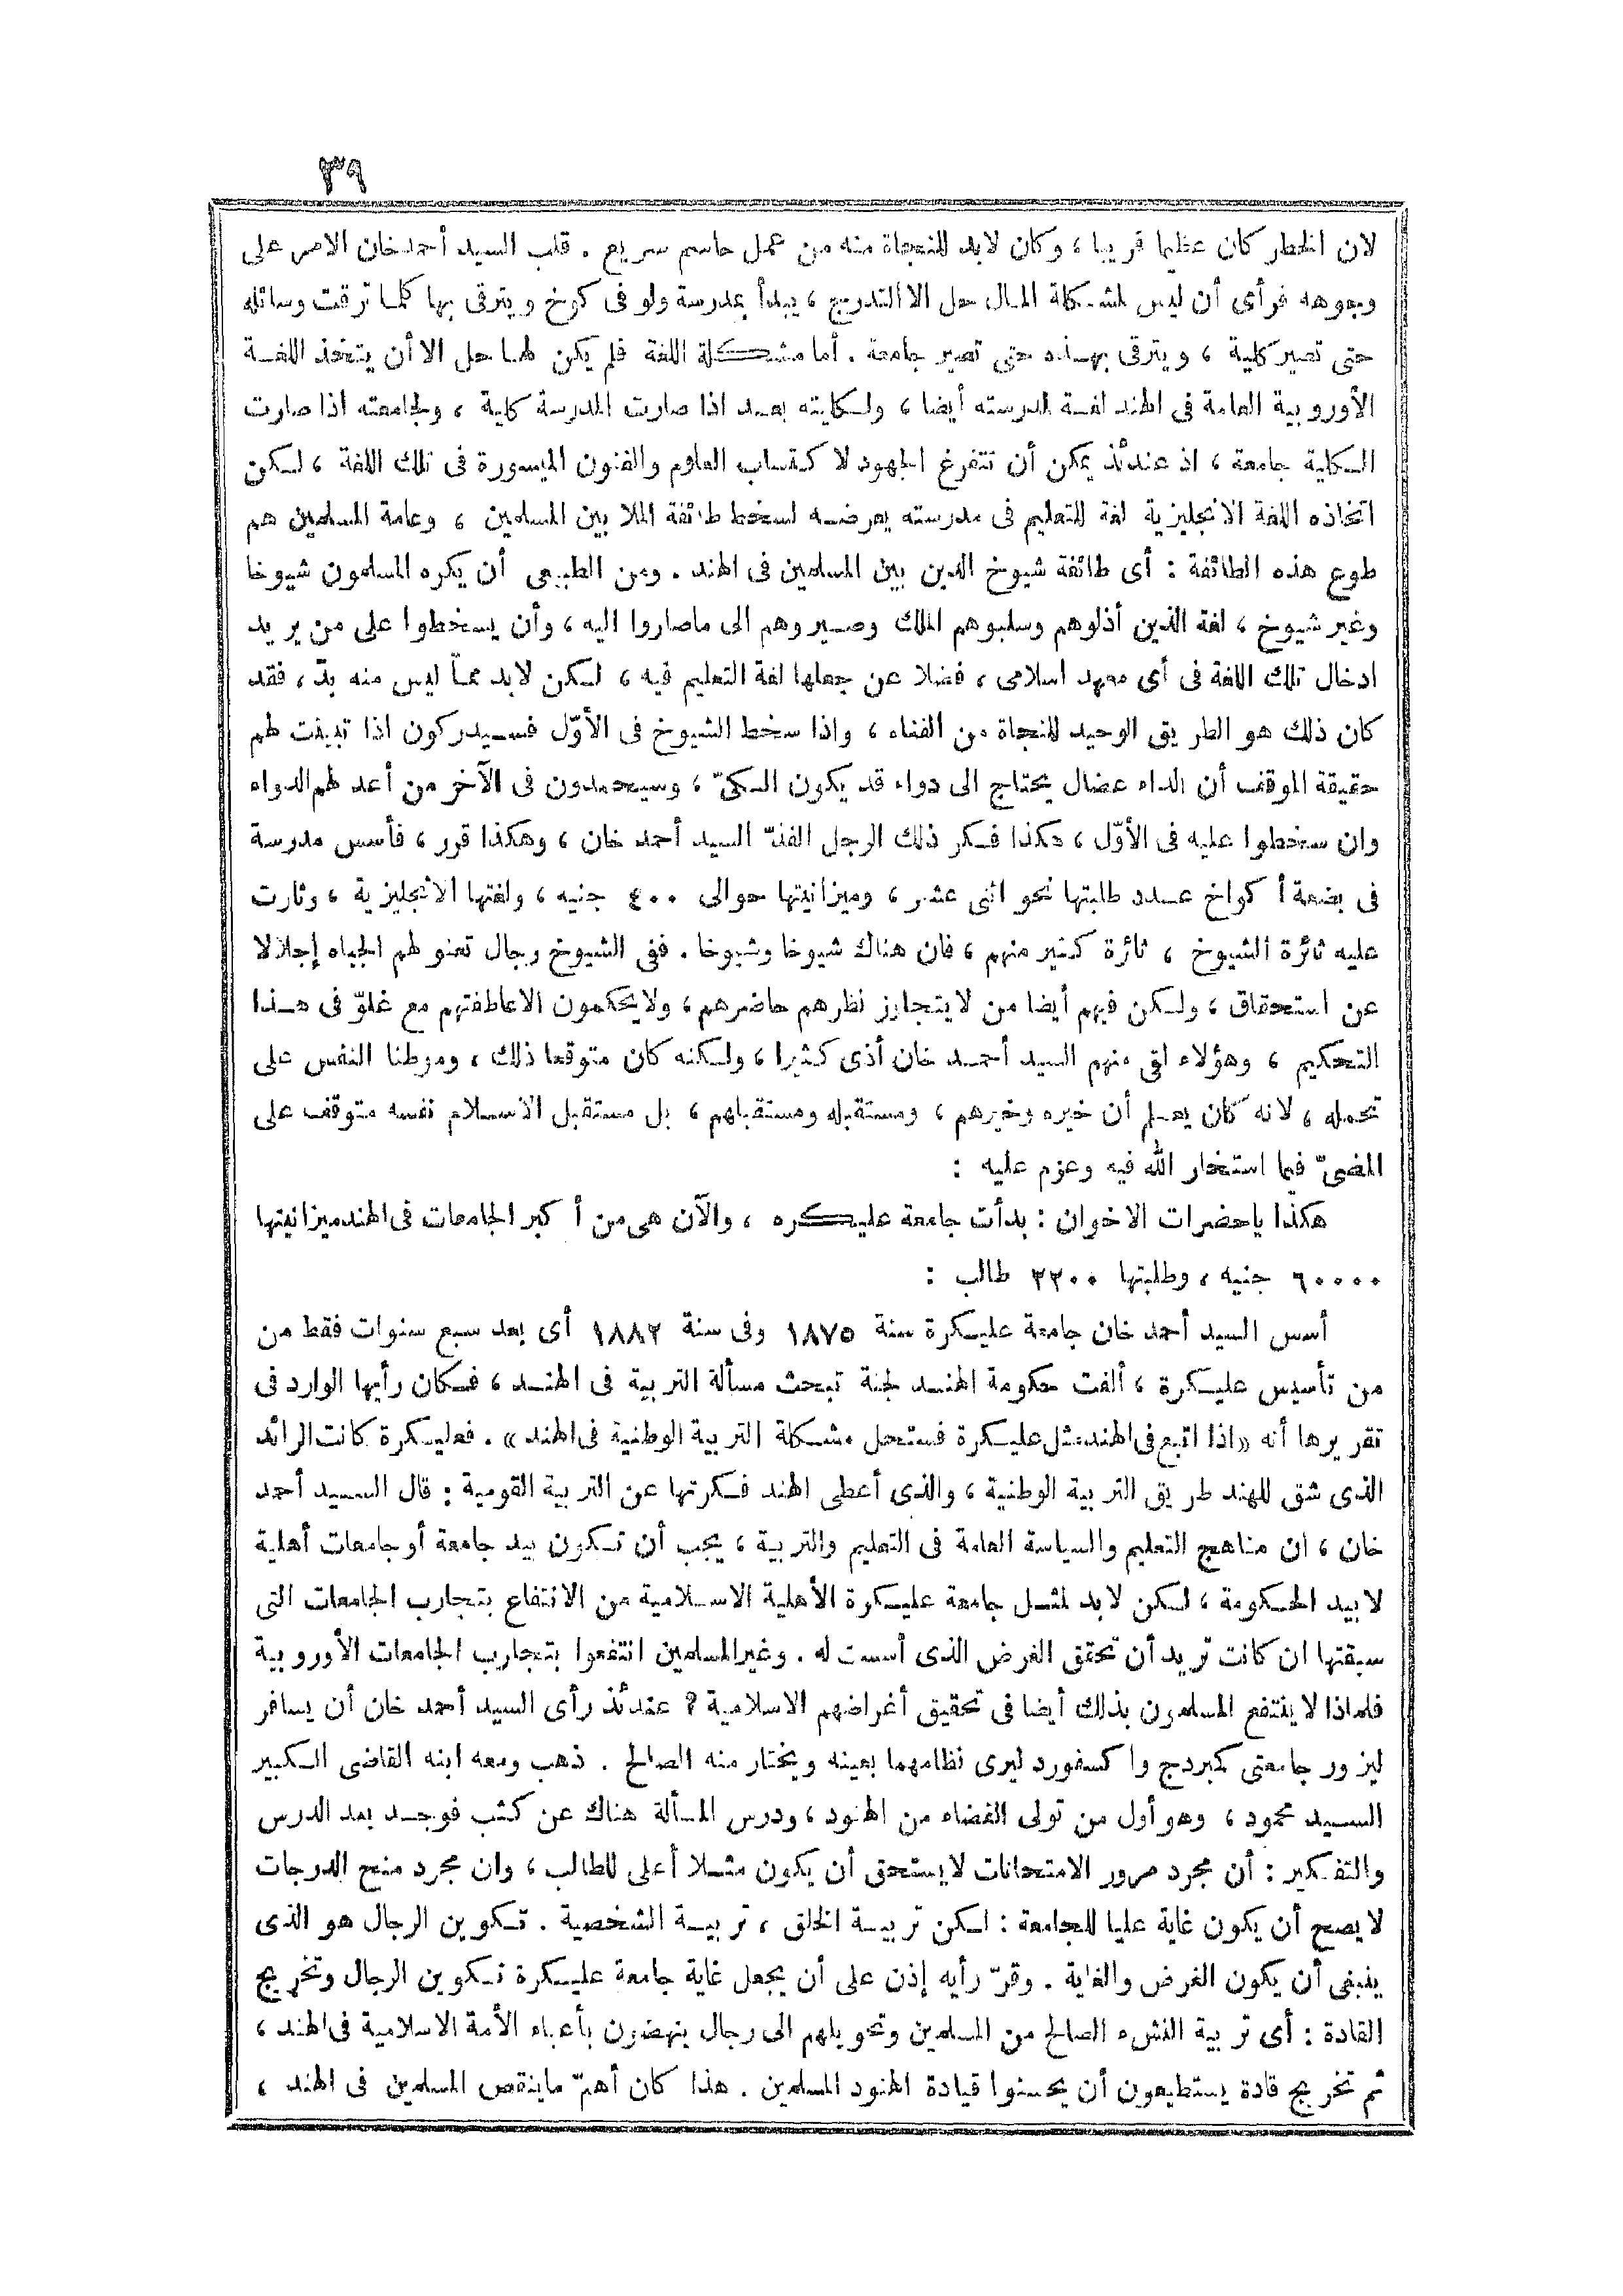 ٣٩
لان الخطر كان عظيما قريبا ، وكان لابد للنجاة منه من عمل حاسم سريع . قلب السيد أحمد خان الامر على
وجوهه فرأى أن ليس لمشكلة المال حل الا التدريج ، يبدأ بمدرسة ولو فى كوخ ويترقى بها كلما ترقت وسائله
حتى تصير كلية ، ويترقى بهذه حتى تصير جامعة . أما مشكلة اللغة فلم يكن لها حل الا أن يتخذ اللغة
الأوروبية العامة فى الهند لغة لمدرسته أيضا ، ولكليته بعد اذا صارت المدرسة كلية ، ولجامعته اذا صارت
الكلية جامعة ، اذ عندئذ يمكن أن تتفرغ الجهود لاكتساب العلوم والفنون الميسورة فى تلك اللغة ، لكن
اتخاذه اللغة الانجليزية لغة للتعليم فى مدرسته يعرضه لسخط طائفة الملا بين المسلمين ، وعامة المسلمين هم
طوع هذه الطائفة : أى طائفة شيوخ الدين بين المسلمين فى الهند . ومن الطبيعى أن يكره المسلمون شيوخا
وغير شيوخ ، لغة الذين أذلوهم وسلبوهم الملك وصيروهم الى ماصاروا اليه ، وأن يسخطوا على من يريد
ادخال تلك اللغة فى أى معهد اسلامى ، فضلا عن جعلها لغة التعليم فيه ، لكن لابد مماّ ليس منه بدّ ، فقد
كان ذلك هو الطريق الوحيد للنجاة من الفناء ، واذا سخط الشيوخ فى الأوّل فسيدركون اذا تبينت لهم
حقيقة الموقف أن الداء عضال يحتاج الى دواء قد يكون الكىّ ، وسيحمدون فى الآخر من أعد لهم الدواء
وان سخطوا عليه فى الأوّل ، هكذا فكر ذلك الرجل الفذّ السيد أحمد خان ، وهكذا قرر ، فأسس مدرسة
فى بضعة أكواخ عدد طلبتها نحو اثنى عشر ، وميزانيتها حوالى ٤٠٠ جنيه ، ولغتها الانجليزية ، وثارت
عليه ثائرة الشيوخ ، ثائرة كثير منهم ، فان هناك شيوخا وشيوخا . ففى الشيوخ رجال تعنو لهم الجباه إجلالا
عن استحقاق ، ولكن فيهم أيضا من لايتجاوز نظرهم حاضرهم ، ولايحكمون الاعاطفتهم مع غلوّ فى هذا
التحكيم ، وهؤلاء لقى منهم السيد أحمد خان أذى كثيرا ، ولكنه كان متوقعا ذلك ، وموطنا النفس على
تحمله ، لانه كان يعلم أن خيره وخيرهم ، ومستقبله ومستقبلهم ، بل مستقبل الاسلام نفسه متوقف على
المضىّ فيما استخار الله فيه وعزم عليه :
هكذا ياحضرات الاخوان : بدأت جامعة عليكره ، والآن هى من أكبر الجامعات فى الهند ميزانيتها
٦٠٠٠٠ جنيه ، وطلبتها ٢٢٠٠ طالب :
أسس السيد أحمد خان جامعة عليكرة سنة ١٨٧٥ وفى سنة ١٨٨٢ أى بعد سبع سنوات فقط من
من تأسيس عليكرة ، ألفت حكومة الهند لجنة تبحث مسألة التربية فى الهند ، فكان رأيها الوارد فى
تقريرها أنه «اذا اتبع فى الهند مثل عليكرة فستحل مشكلة التربية الوطنية فى الهند» . فعليكرة كانت الرائد
الذى شق للهند طريق التربية الوطنية ، والذى أعطى الهند فكرتها عن التربية القومية : قال السيد أحمد
خان ، ان مناهج التعليم والسياسة العامة فى التعليم والتربية ، يجب أن تكون بيد جامعة أو جامعات أهلية
لا بيد الحكومة ، لكن لابد لمثل جامعة عليكرة الأهلية الاسلامية من الانتفاع بتجارب الجامعات التى
سبقتها ان كانت تريد أن تحقق الغرض الذى أسست له . وغيرالمسلمين انتفعوا بتجارب الجامعات الأوروبية
فلماذا لاينتفع المسلمون بذلك أيضا فى تحقيق أغراضهم الاسلامية ؟ عندئذ رأى السيد أحمد خان أن يسافر
ليزور جامعتى كمبردج واكسفورد ليرى نظامهما بعينه ويختار منه الصالح . ذهب ومعه ابنه القاضى الكبير
السيد محمود ، وهو أول من تولى القضاء من الهنود ، ودرس المسألة هناك عن كثب فوجد بعد الدرس
والتفكير : أن مجرد مرور الامتحانات لايستحق أن يكون مثلا أعلى للطالب ، وان مجرد منح الدرجات
لا يصح أن يكون غاية عليا للجامعة : لكن تربية الخلق ، تربية الشخصية . تكوين الرجال هو الذى
ينبغى أن يكون الغرض والغاية . وقرّ رأيه إذن على أن يجعل غاية جامعة عليكرة تكوين الرجال وتخريج
القادة : أى تربية النشء الصالح من المسلمين وتحويلهم الى رجال ينهضون بأعباء الأمة الاسلامية فى الهند ،
ثم تخريج قادة يستطيعون أن يحسنوا قيادة الهنود المسلمين . هذا كان أهمّ ماينقص المسلمين فى الهند ،